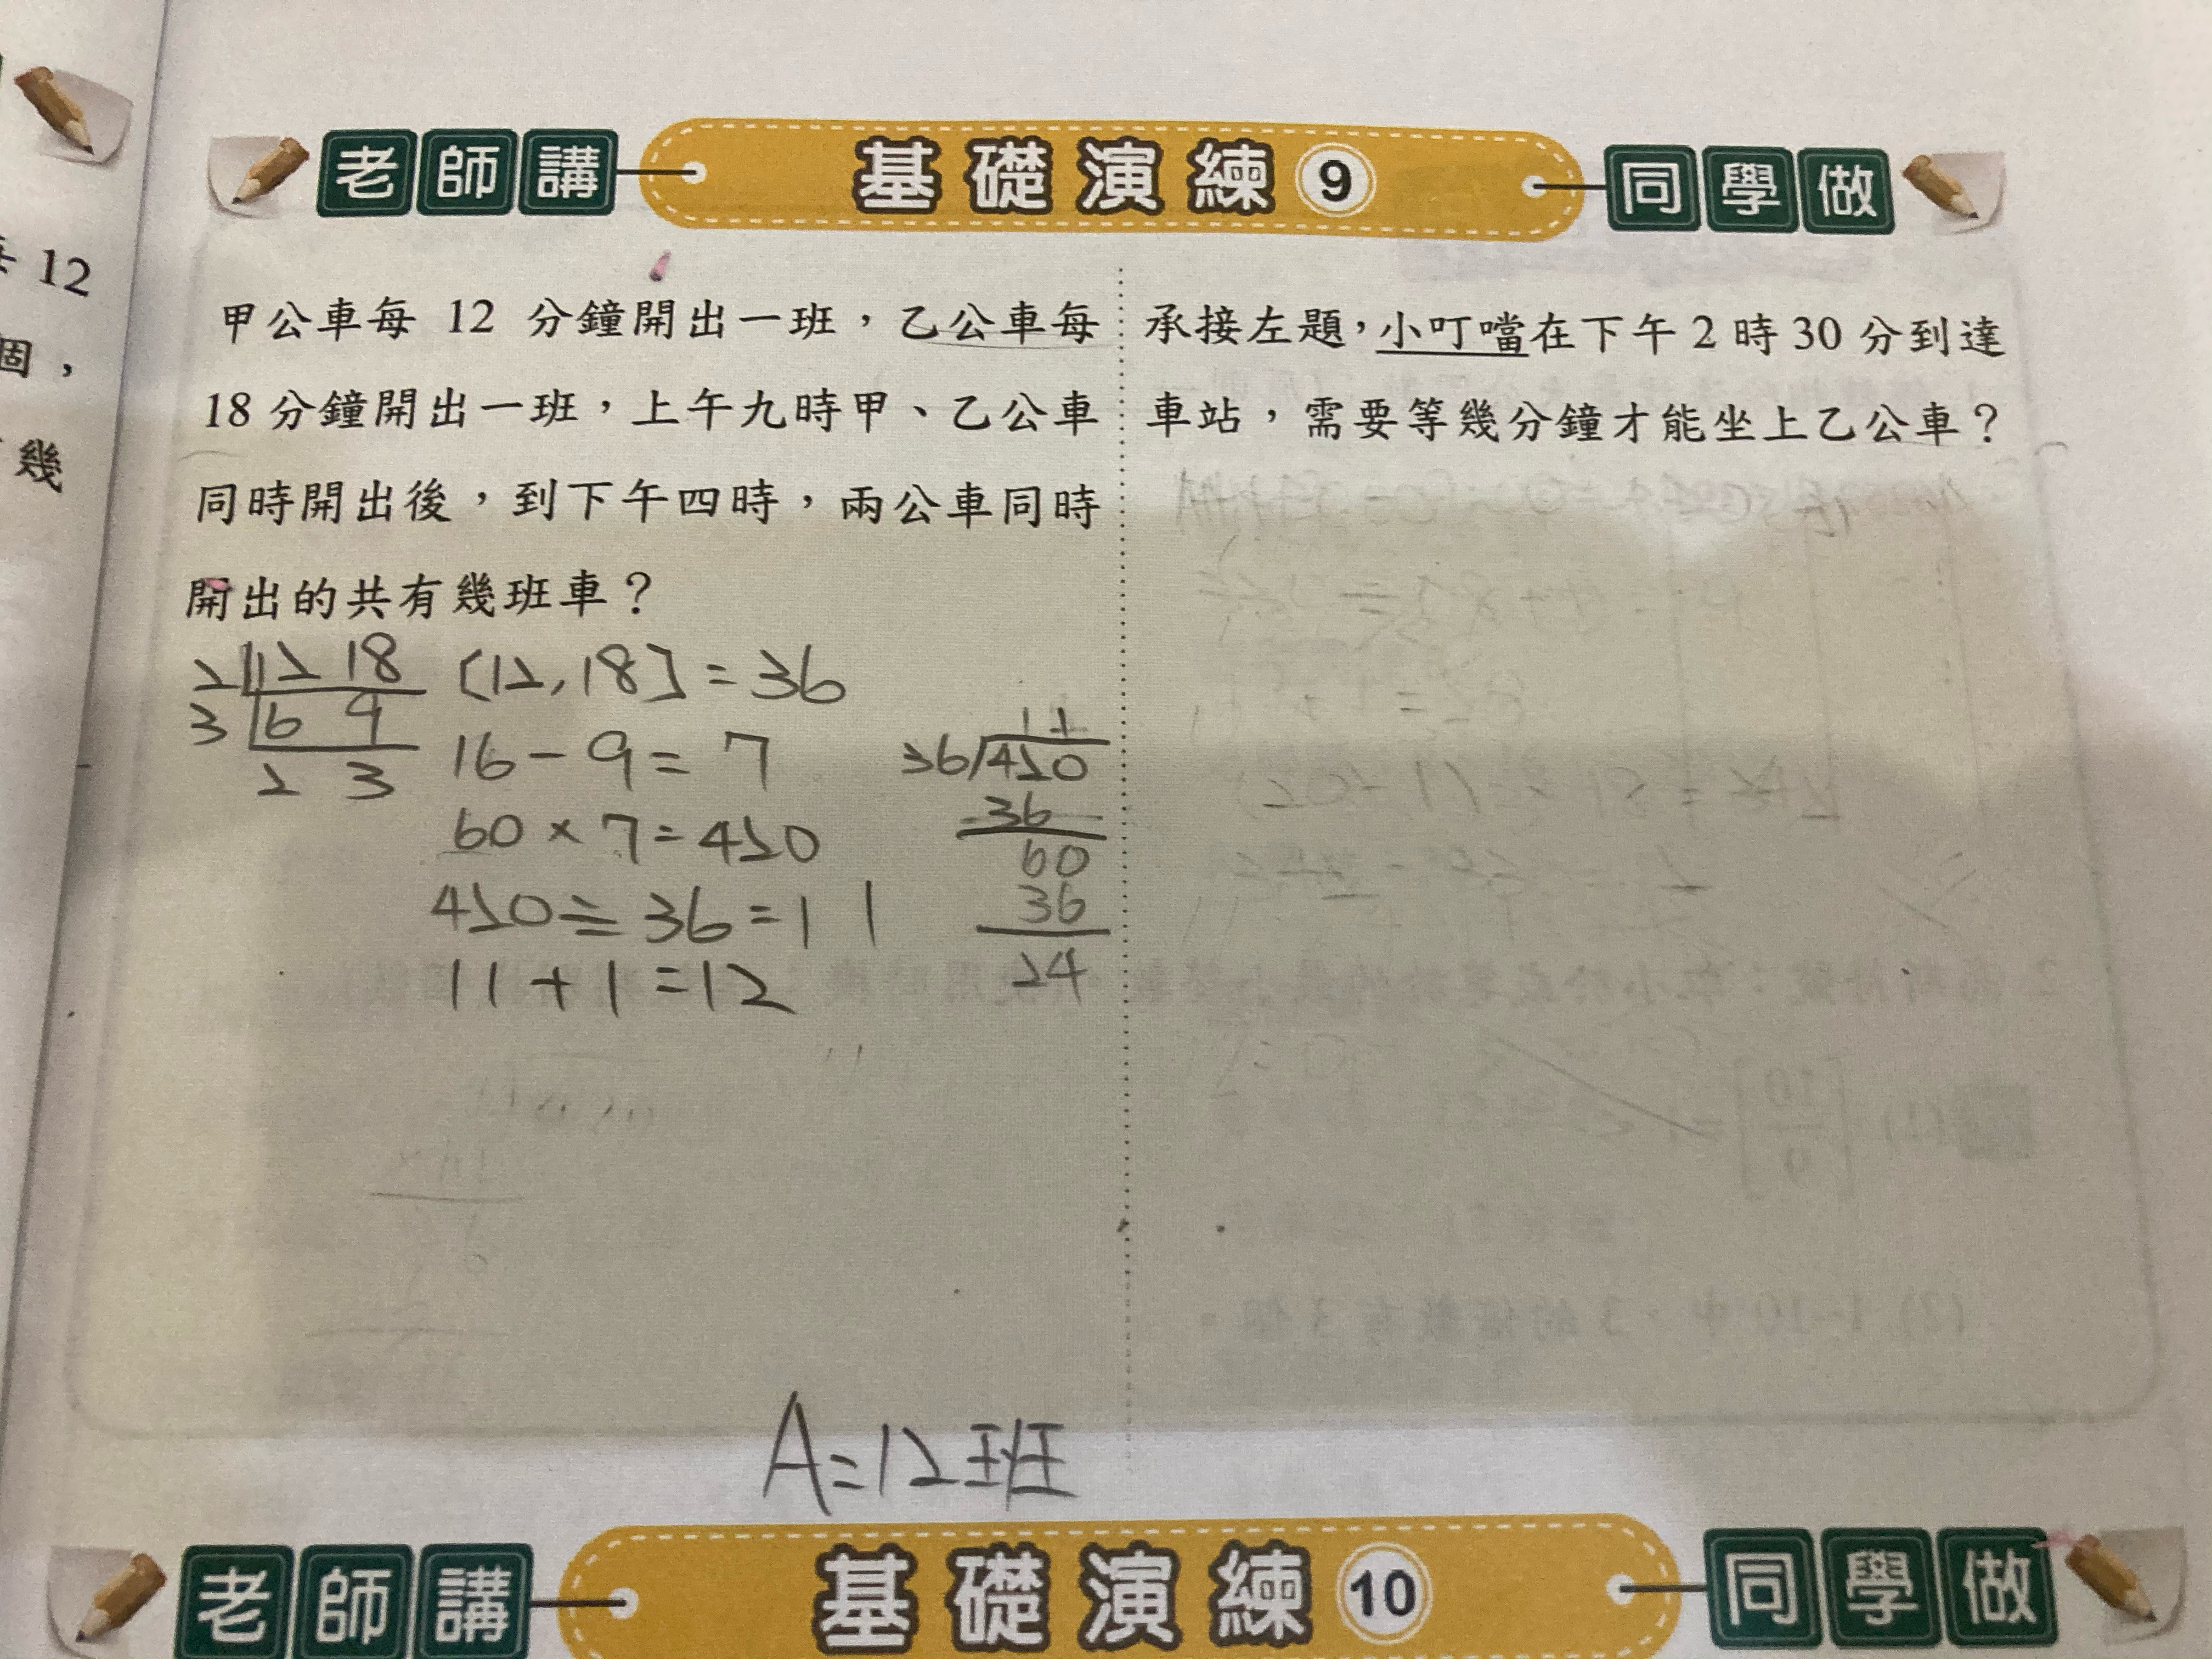 12
個，
幾
老師講 基礎演練 9 同學做
甲公車每 12 分鐘開出一班，乙公車每
18 分鐘開出一班，上午九時甲、乙公車
同時開出後，到下午四時，兩公車同時
開出的共有幾班車？
2 12 18
3 6 9
2 3
[12,18]=36
16-9=7
60×7=420
420÷36=11
11+1=12
11
36 420
-36
60
36
24
A=12班
承接左題，小叮噹在下午 2 時 30 分到達
車站，需要等幾分鐘才能坐上乙公車？
老師講 基礎演練 10 同學做